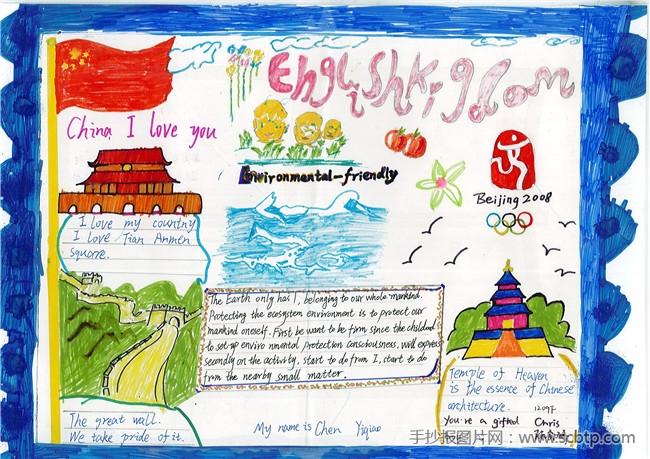 EnglishKigdom
China I love you
Environmental-friendly
Beijing 2008
I love my country
I love Tian Anmen
Squarre.
The Earth only has 1, belonging to our whole mankind.
Protecting the ecosystem environment is to protect our
mankind oneself. First be want to be firm since the childhood
to set up enviro nmental protection consciousness, will express
secondly on the activity, start to do from I, start to do
from the nearby small matter.
Temple of Heaven
is the essence of Chinese
architecture.
You're a gifted Chris
The great wall.
We take pride of it.
My name is Chen Yiqiao
手抄报图片网:www.scbtp.com